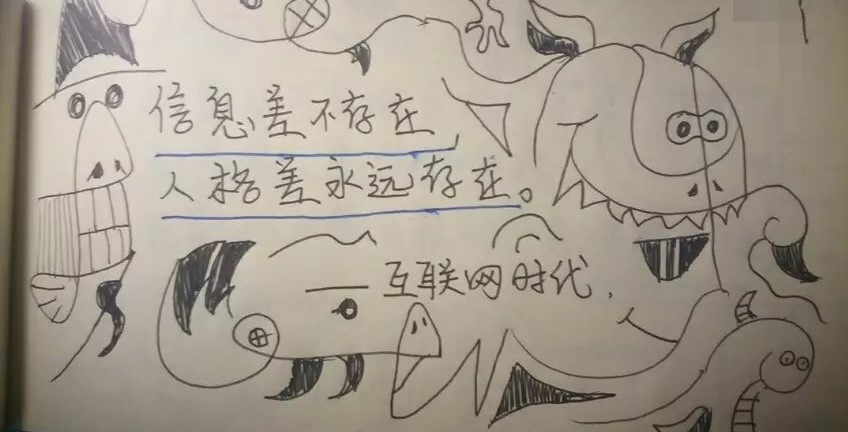 信息差不存在,
人格差永远存在。
互联网时代,